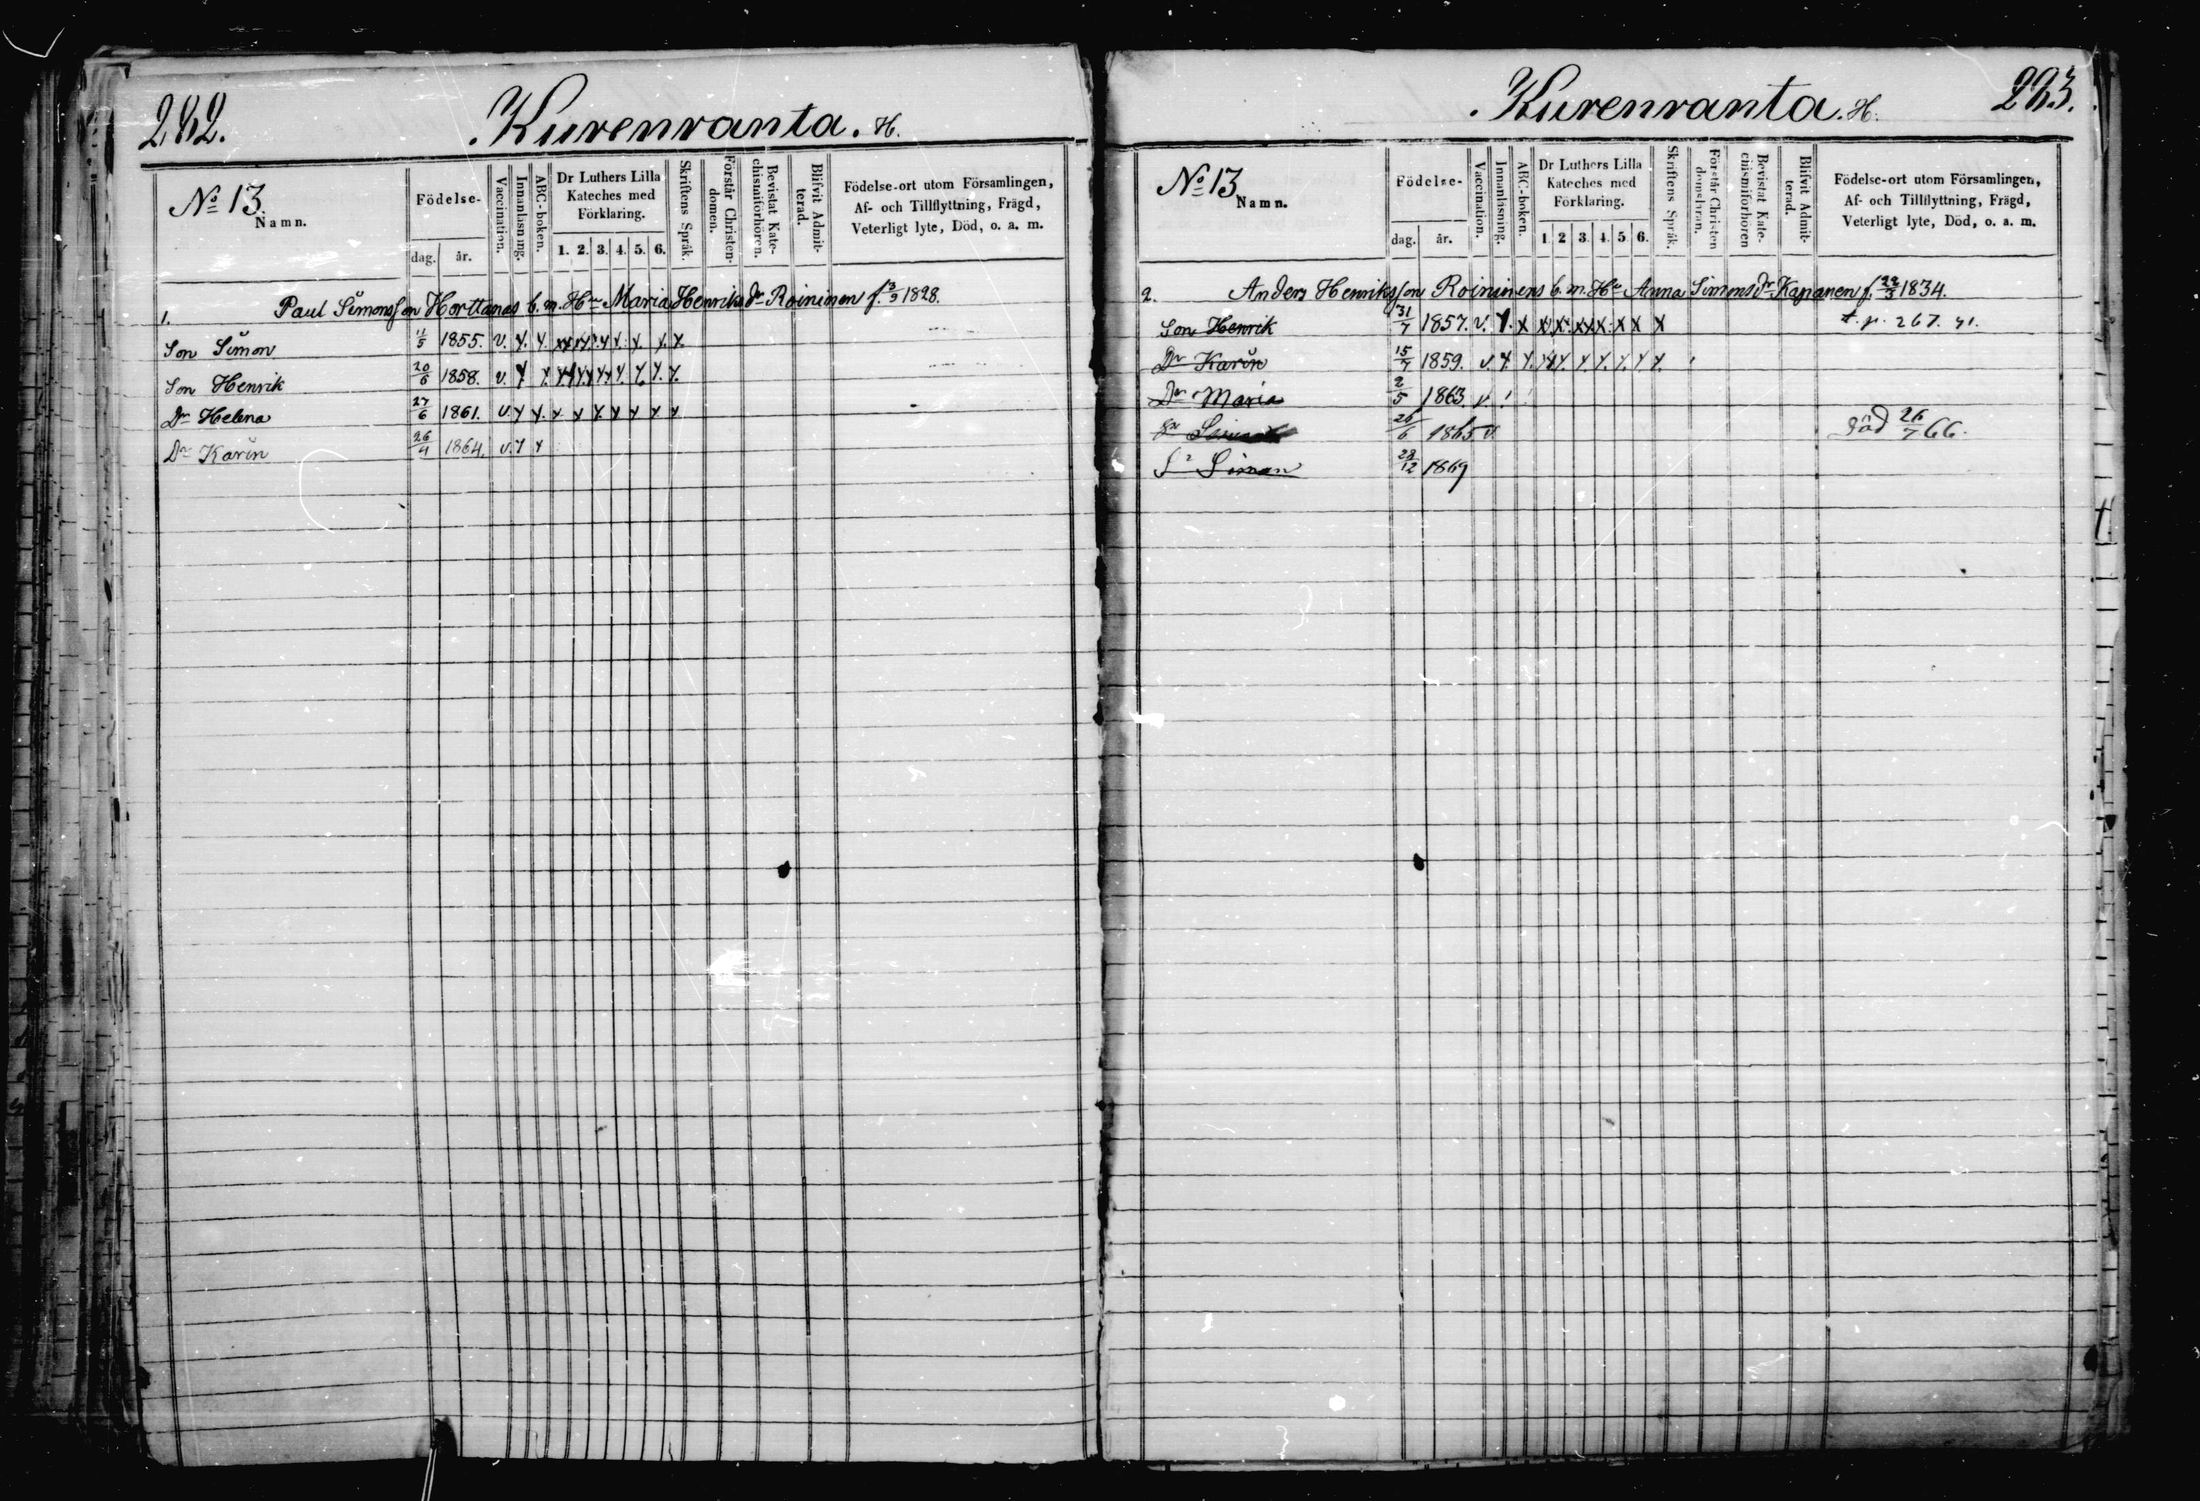 282.
Kurenranta. H.
No 13.
Namn.
Födelse-
dag. år.
Vaccination.
Innanläsning.
ABC-boken.
Dr Luthers Lilla
Kateches med
Förklaring.
1. 2. 3. 4. 5. 6.
Skriftens Språk.
Förstår Christen-
domen.
Bevistat Kate-
chismiförhören.
Blifvit Admit-
terad.
Födelse-ort utom Församlingen,
Af- och Tillflyttning, Frägd,
Veterligt lyte, Död, o. a. m.
1. Paul Simonsson Horttanas b. m. Hu Maria Henriksdr Roininen f. 3/9 1828.
Son Simon 11/5 1855. v. x. x. x x x x x x x. x.
Son Henrik 20/6 1858. v. x x. x x x x x. x. x. x.
Dr Helena 27/6 1861. v. x x. x x x x x x x
Dr Karin 26/4 1864. v. x x
283.
Kurenranta. H.
No 13
Namn.
Födelse-
dag. år.
Vaccination.
Innanläsning.
ABC-boken.
Dr Luthers Lilla
Kateches med
Förklaring.
1. 2 3. 4. 5. 6.
Skriftens Språk.
Förstår Christen
domsläran.
Bevistat Kate-
chismiförhören
Blifvit Admit-
terad.
Födelse-ort utom Församlingen,
Af- och Tillflyttning, Frägd,
Veterligt lyte, Död, o. a. m.
2. Anders Henriksson Roininens b. m. Hu Anna Simonsdr Kapanen f. 22/3 1834.
Son Henrik 31/7 1857. v. x. x x x x x x x x t. p. 267. 71.
Dr Karin 15/7 1859. v. x. x. x x. x. x. x. x x.
Dr Maria 2/5 1863. v.
26/6 1865 v. död 26/7 66.
Sn Simon 28/12 1869